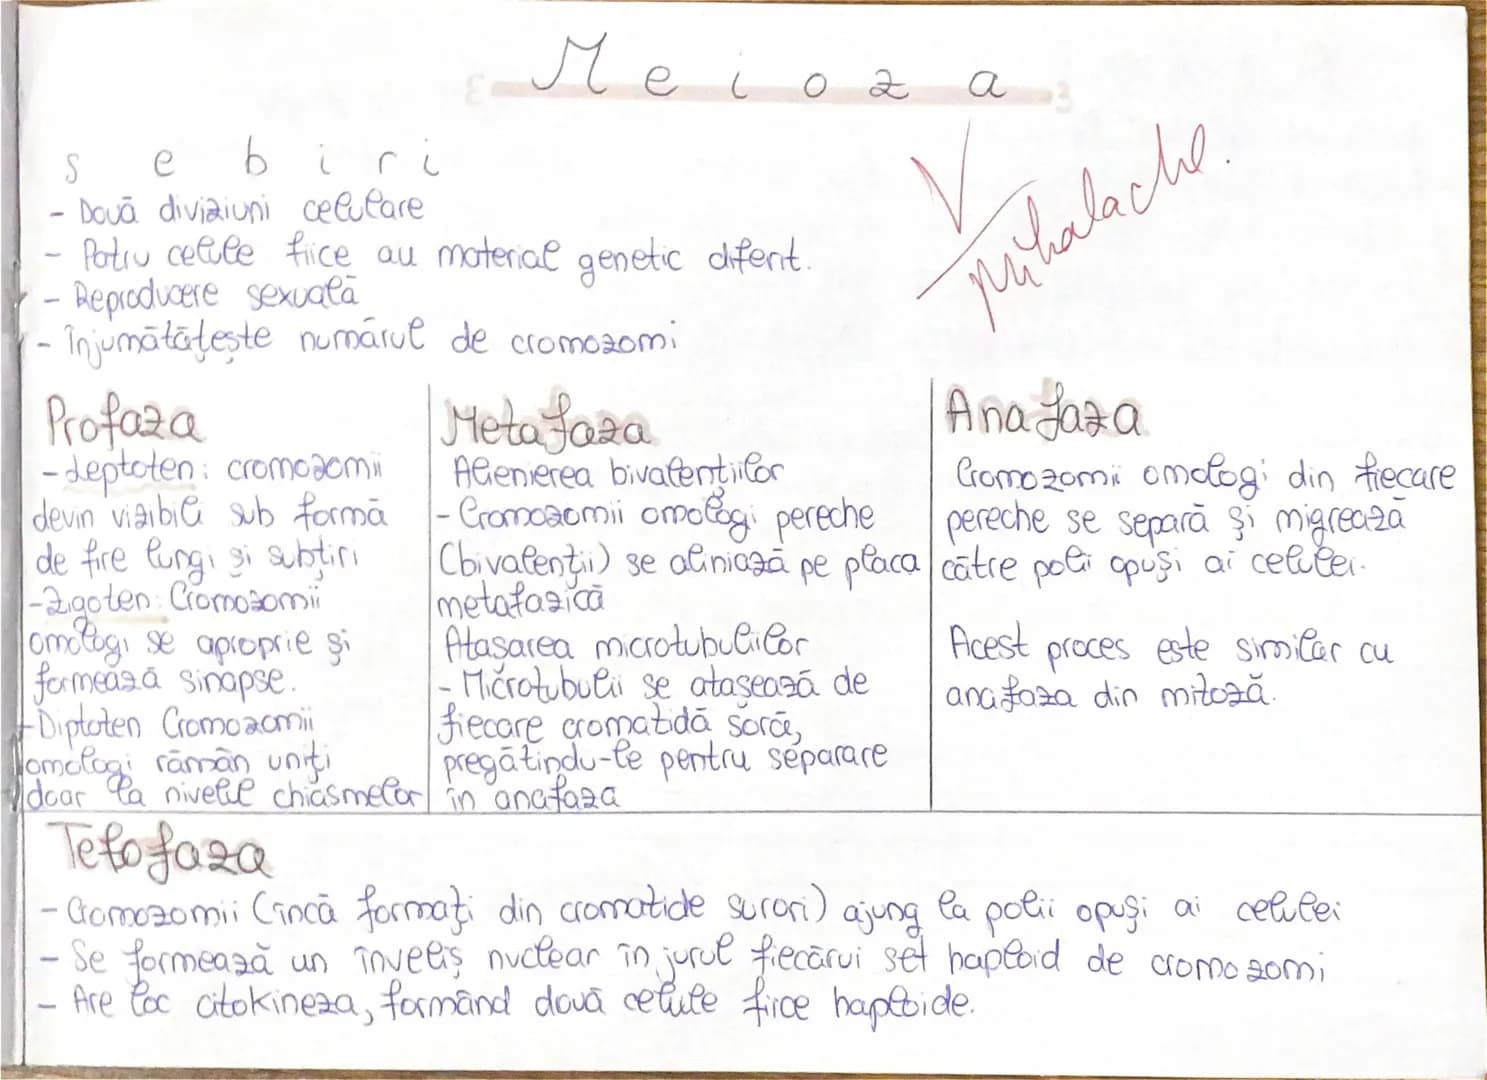 Meioza
sebiri
- Două diviziuni celulare
- Patru celule fiice au material genetic diferit.
- Reproducere sexuală
- Înjumătățește numărul de cromozomi
Profaza
- Leptoten: cromozomii
devin vizibili sub formă
de fire lungi și subțiri
- Zigoten: Cromozomii
omologi se apropie și
formează sinapse.
- Diploten Cromozomii
omologi rămân uniți
doar la nivelul chiasmelor
Metafaza
Alienierea bivalenților
- Cromozomii omologi pereche
(bivalenții) se aliniază pe placa
metafazică
Atașarea microtubulilor
- Microtubulii se atașează de
fiecare cromatidă soră,
pregătindu-le pentru separare
în anafaza
Anafaza
Cromozomii omologi din fiecare
pereche se separă și migrează
către poli opuși ai celulei.
Acest proces este similar cu
anafaza din mitoză.
Telofaza
- Cromozomii (încă formați din cromatide surori) ajung la polii opuși ai celulei
- Se formează un înveliș nuclear în jurul fiecărui set haploid de cromozomi
- Are loc citokineza, formând două celule fiice haploide.